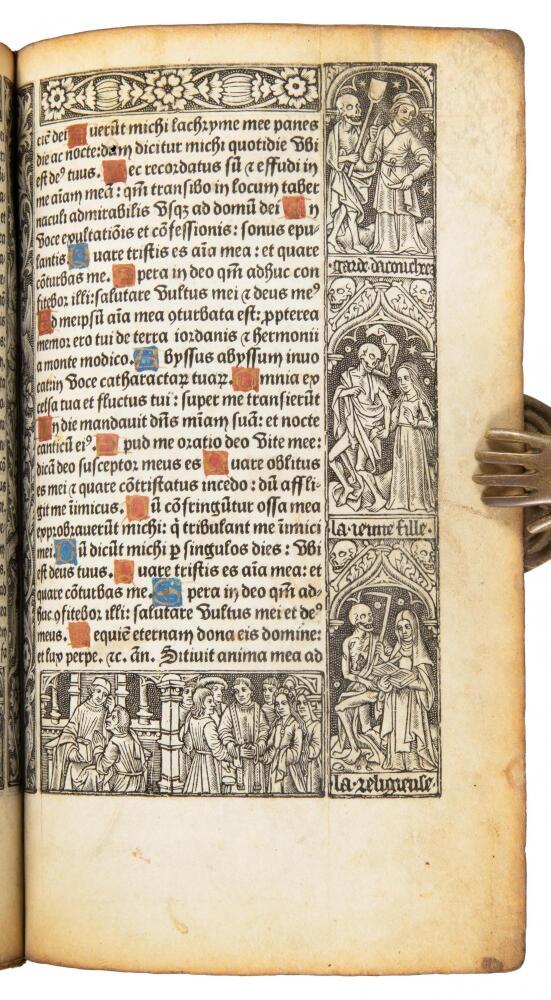 ciē dei Fuerūt michi lachryme mee panes
die ac nocte: dum dicitur michi quotidie Vbi
est deꝰ tuus. Hec recordatus sū ⁊ effudi in
me aīam meā: qm̄ transibo in locum taber
naculi admirabilis Vsqȝ ad domū dei In
Voce exultatiōis et cōfessionis: sonus epu-
lantis. Quare tristis es aīa mea: et quare
cōturbas me. Spera in deo qm̄ adhuc con
fitebor illi: salutare Vultus mei ⁊ deus meꝰ
Ad meipsū aīa mea ꝯturbata est: ꝓpterea
memor ero tui de terra iordanis ⁊ hermonii
a monte modico. Abyssus abyssum inuo
cat: in Voce catharactaꝝ tuaꝝ. Omnia ex
celsa tua et fluctus tui: super me transierūt
In die mandauit dn̄s mīam suā: et nocte
canticū eiꝰ. Apud me oratio deo Vite mee:
dicā deo susceptor meus es Quare oblitus
es mei ⁊ quare cōtristatus incedo: dū affli-
git me īimicus. Dū cōfringūtur ossa mea
exprobrauerūt michi: q̇ tribulant me īimici
mei. Dū dicūt michi ꝑ singulos dies: Vbi
est deus tuus. Quare tristis es aīa mea: et
quare cōturbas me. Spera in deo qm̄ ad-
huc ꝯfitebor illi: salutare Vultus mei et deꝰ
meus. Requiē eternam dona eis domine:
et lux perpe. ⁊c. an̄. Sitiuit anima mea ad
garde dacouchees
la ieune fille.
la religieuse.